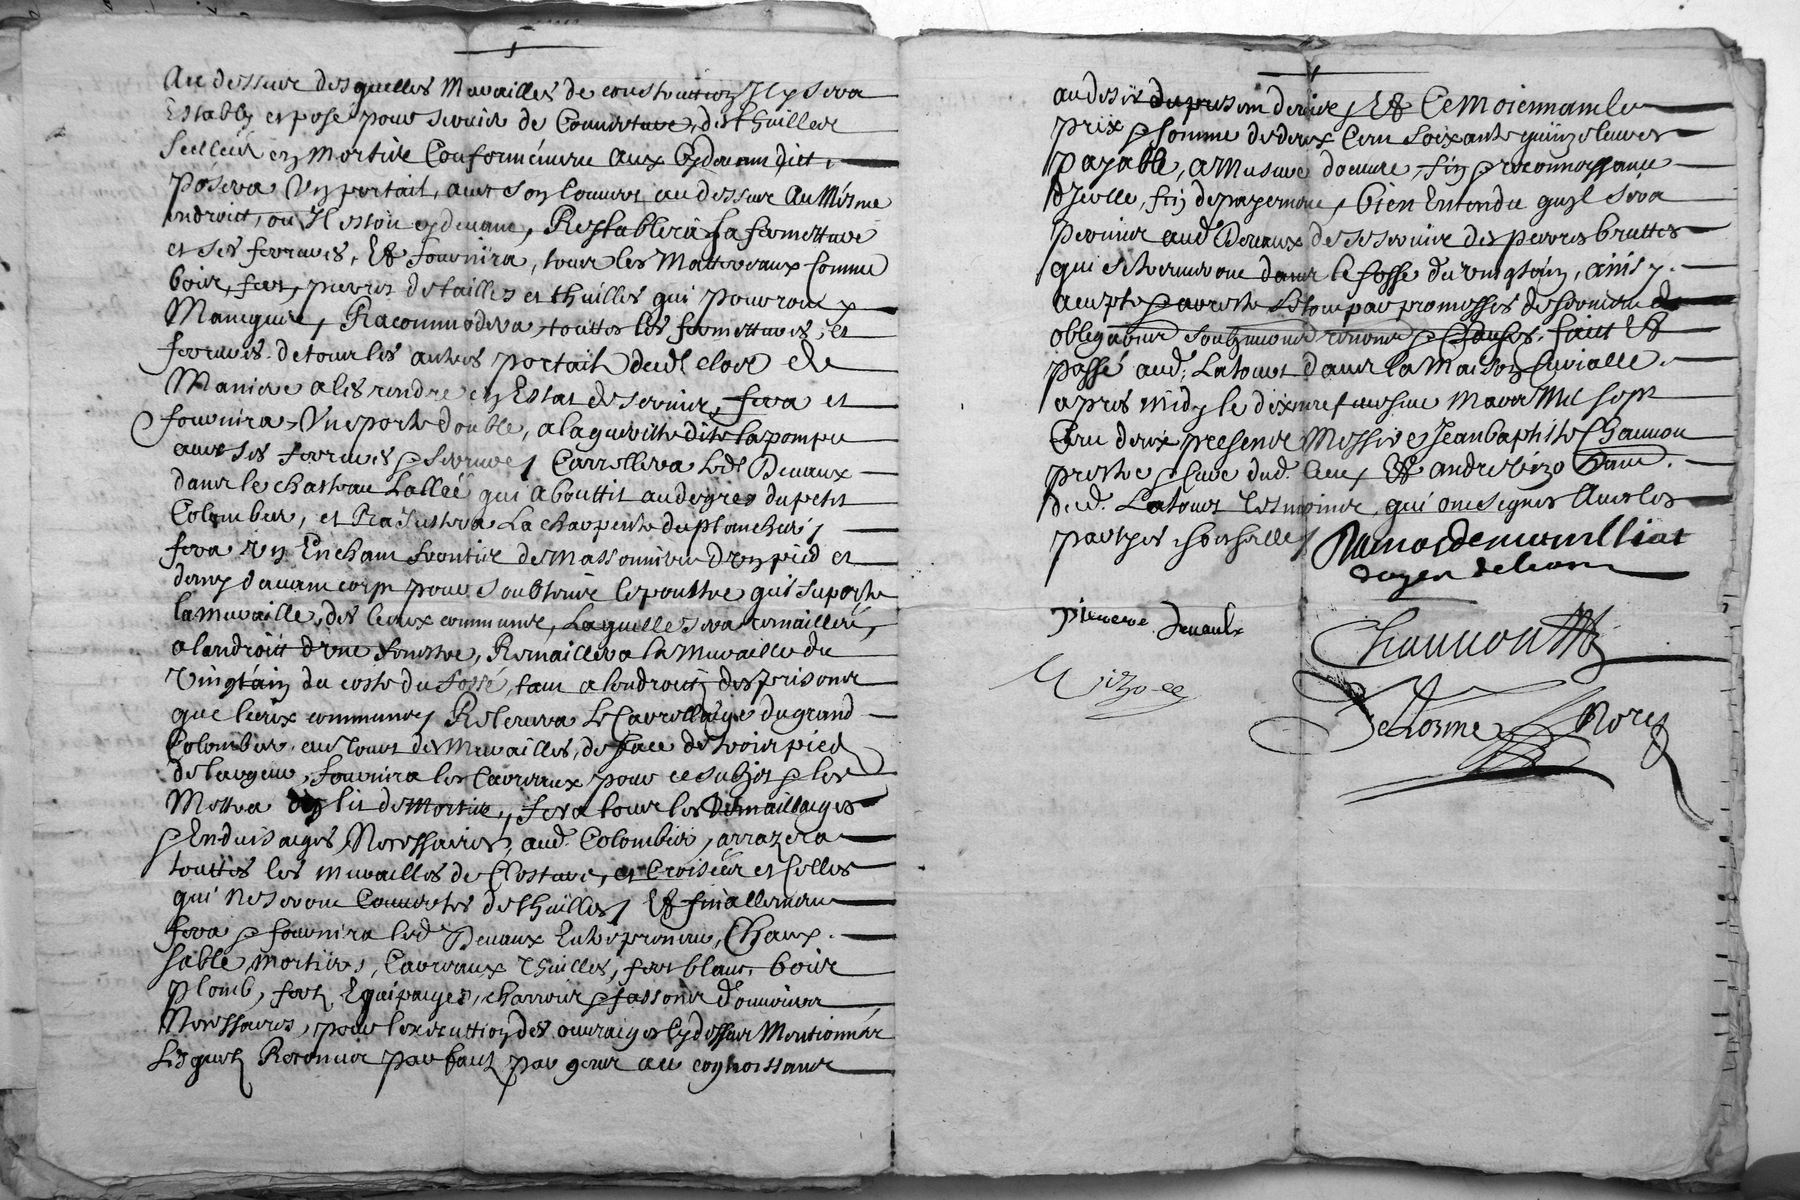 Au dessus desquelles Murailles de construction Il y sera
Estably et posé pour servir de Couverture, des thuilles
Seellées en mortier Conformément aux Cydevant dict.
Posera Un portail, avec son Couvert au dessus Au Mesme
endroict, ou Il estoit cydevant, Restablira La fermetture
et ses ferrures, Et fournira, tous les Matteriaux Comme
bois, fert, pierres de tailles et thuilles qui pourront y
Manquer, Racommodera touttes les fermettures, et
ferrures de tous les autres portails dud. clos de
Maniere a les rendre en Estat de servir, fera et
fournira Une porte double, a laquelle dite la pompe
avec ses ferrures & serrures, Carrellera led. Devaux
dans le chasteau Lallée qui abouttit au degres du petit
Colombier, et Rajustera La charpente du plancher,
fera un Enchant frontier de Massonnerie d'un pied et
demy d'avant corps pour soubtenir le pouttre qui suporte
la muraille, des lieux communs, Laquelle sera remaillée,
a lendroitt d'une fenestre, Remaillera la Muraille du
Vingtain du coste du fossé, tant a lendroict des prisons
que lieux communs, Relevera Le Carrellaige du grand
Colombier, au tour des Murailles, de face de trois pied
de largeur, fournira les Carreaux pour ce subjet & les
Mettra lit de Mortier, fera tous les Remaillaiges
& Enduisaiges Necessaires, aud. Colombier, arrazera
touttes les murailles de Closture, et Croisées et Celles
qui ne seront Couvertes de thuilles, Et finallement
fera & fournira led. Devaux Entrepreneur, Chaux
sable mortier, Carreaux Thuilles, fert blanc, bois
plomb, fert, Equipaiges, charrois & fassons d'ouvriers
Necessaires, pour lexecuttion des ouvraiges Cydessus Mentionnés
Lesquels Reconnus parfaits par gens au cognoissants
au desir dernier, Et Ce Moiennant le
prix & somme de deux Cent soixante quinze livres
payable, A Mesure d'oeuvre, fin & reconnoissance
d'Icelle, fin de payement, bien Entendu qu'il sera
permis aud. Devaux de se servir des pierres bruttes
qui se treuveront dans le fosse du vingtain, ainsy
accepté & arresté Le tout par promesses de serment
obligations soubzmissions renonces & Clauses. faict Et
passé aud. Latour dans la Maison Curialle
apres midy le dixneufviesme Mars Mil sept
Cent deux presents Messire Jean baptiste Chauvon
prestre & Curé dud. lieu, Et andre Vizo
dud. Latour tesmoins, qui ont signés Avec les
parties
doyen de
pierre devaulx
Chauvon
Vizo
Delorme Nore